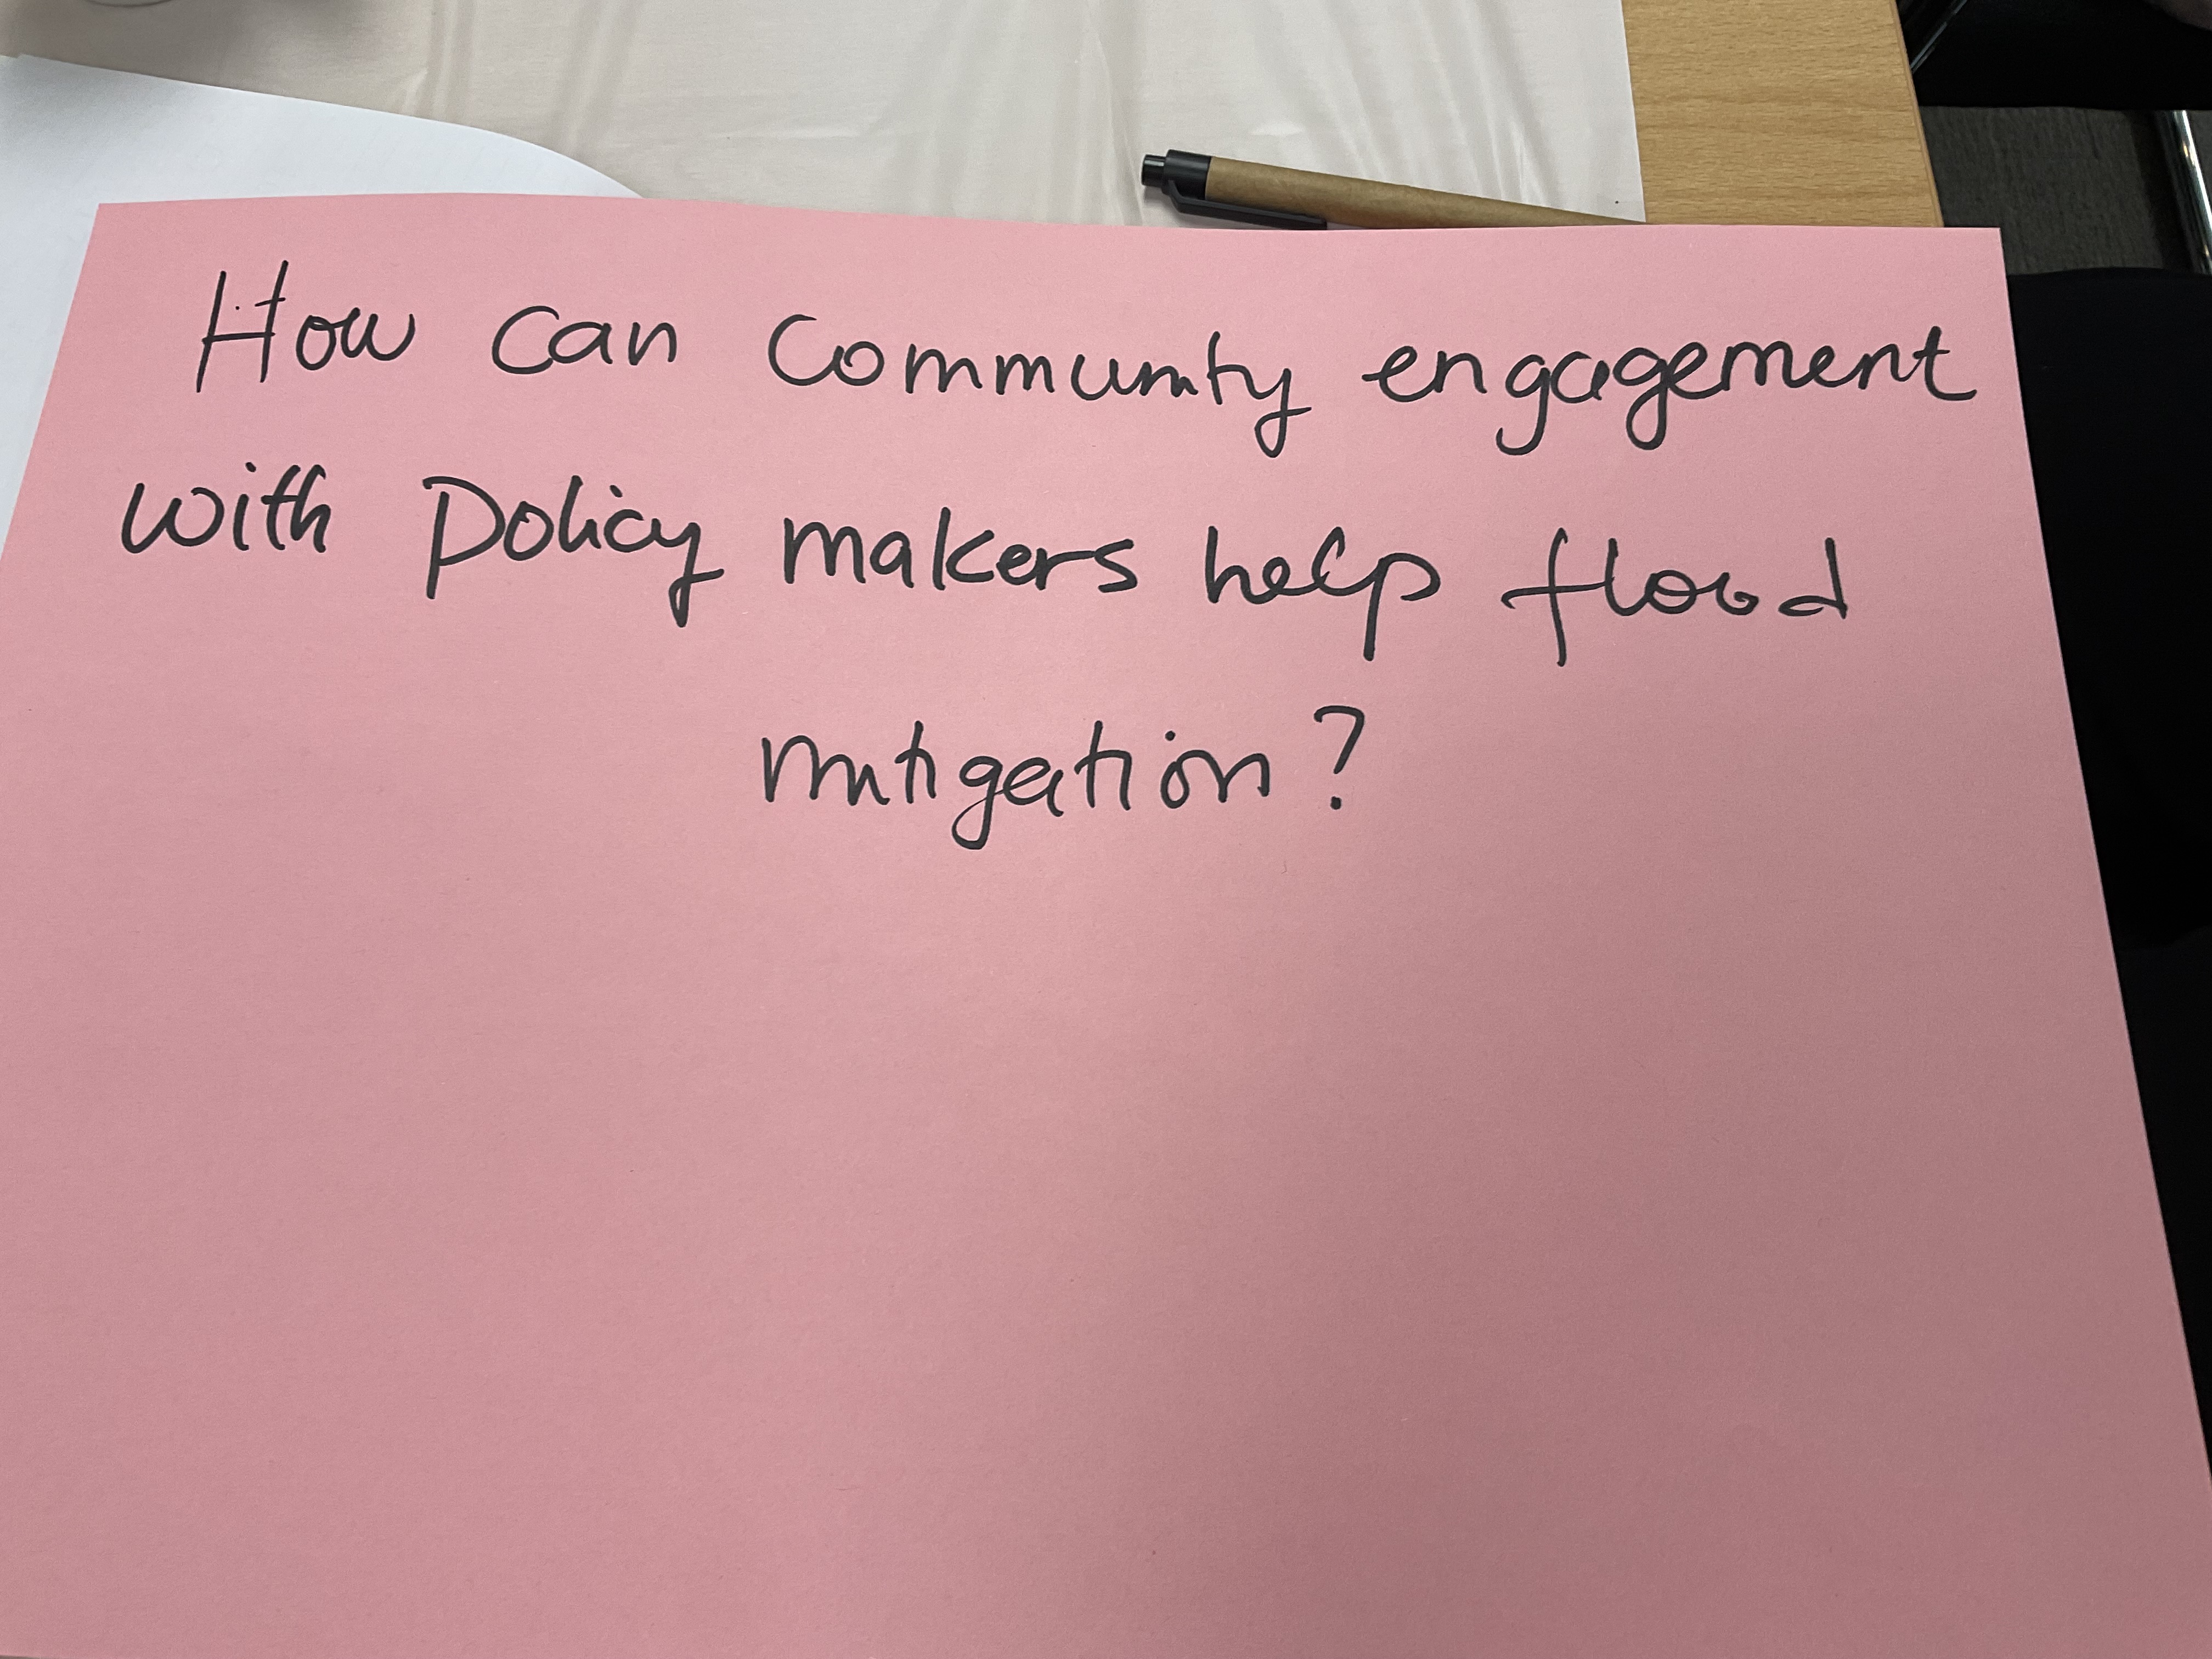 How can Community engagement
with Policy makers help flood
mitigation?